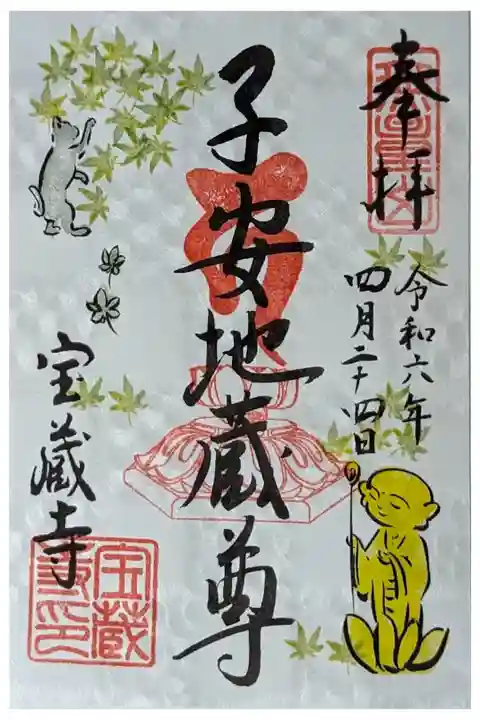 奉拝
令和六年
四月二十四日
子安地蔵尊
宝蔵寺
宝蔵
寺印